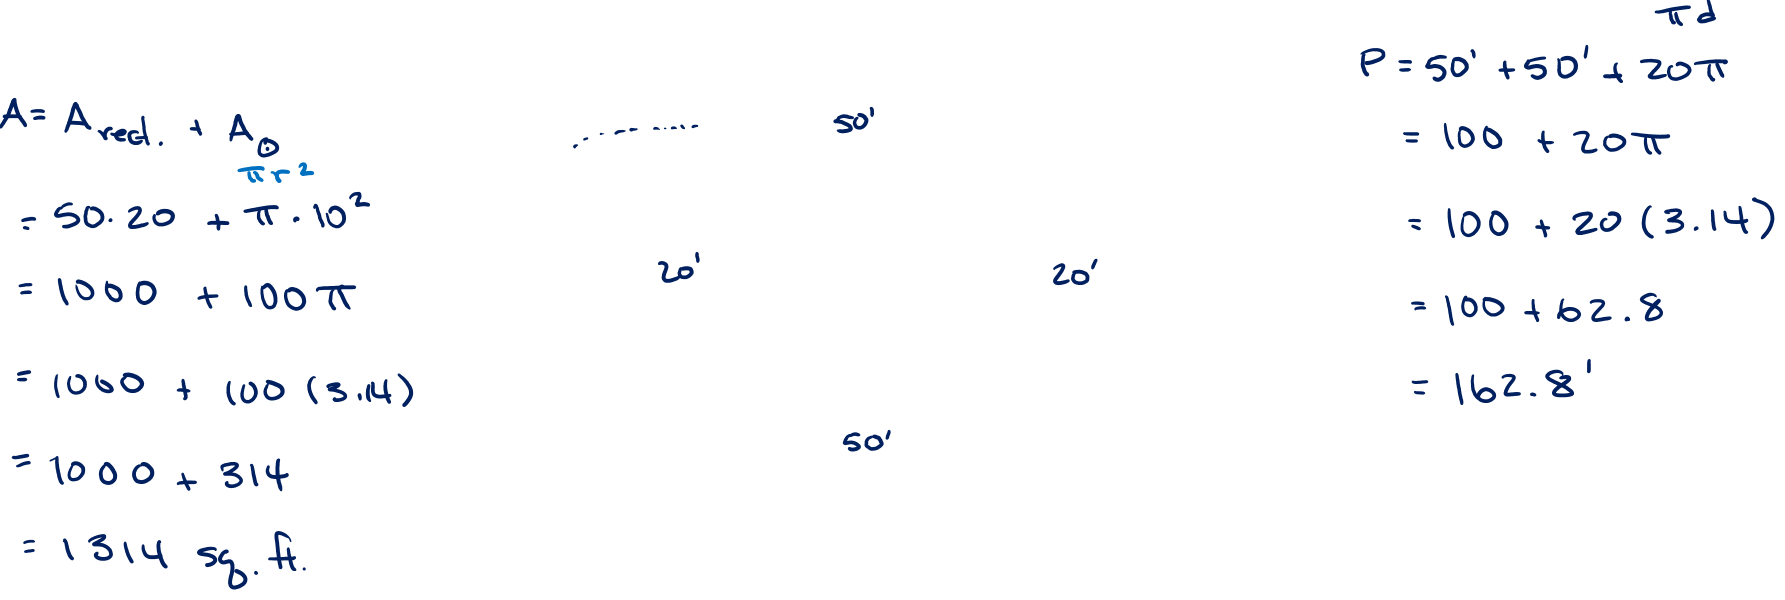 A = A rect. + A⊙
πr²
= 50·20 + π·10²
= 1000 + 100π
= 1000 + 100(3.14)
= 1000 + 314
= 1314 sq. ft.
50'
20'
20'
50'
πd
P = 50' + 50' + 20π
= 100 + 20π
= 100 + 20(3.14)
= 100 + 62.8
= 162.8'